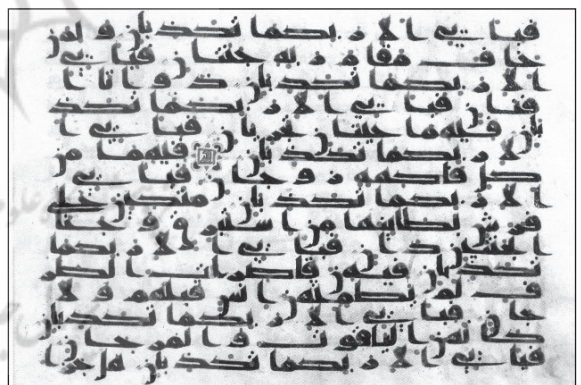 فبأي آلاء ربكما تكذبان ولمن
خاف مقام ربه جنتان فبأي
آلاء ربكما تكذبان ذواتا أ
فنان فبأي آلاء ربكما تكذ
بان فيهما عينان تجريان فبأي آ
لاء ربكما تكذبان فيهما من
كل فاكهة زوجان فبأي
آلاء ربكما تكذبان متكئين على
فرش بطائنها من إستبرق وجنا
الجنتين دان فبأي آلاء ربكما
تكذبان فيهن قاصرات الطر
ف لم يطمثهن إنس قبلهم ولا
جان فبأي آلاء ربكما تكذبان
كأنهن الياقوت والمرجان
فبأي آلاء ربكما تكذبان هل جزا